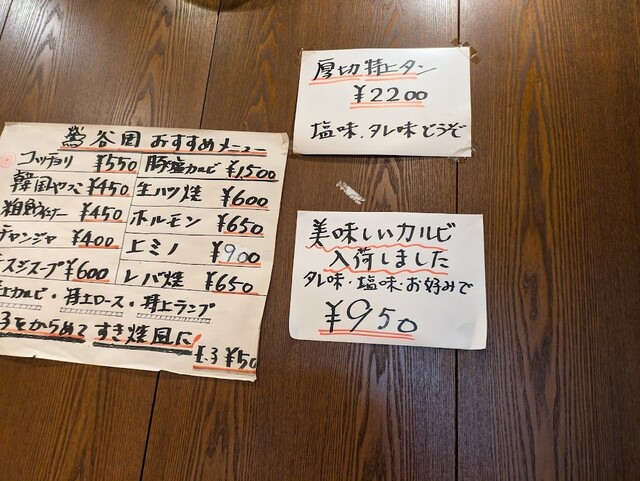 鶯谷園 おすすめメニュー
コッチョリ ¥550
韓国ヤッコ ¥450
粗挽ソーセー ¥450
チャンジャ ¥400
スジスープ ¥600
豚塩カルビ ¥1500
生ハツ焼 ¥600
ホルモン ¥650
上ミノ ¥900
レバ焼 ¥650
上カルビ・特上ロース・特上ランプ
をからめて すき焼風に!
¥50
厚切特上タン
¥2200
塩味.タレ味どうぞ
美味しいカルビ
入荷しました
タレ味・塩味・お好みで
¥950